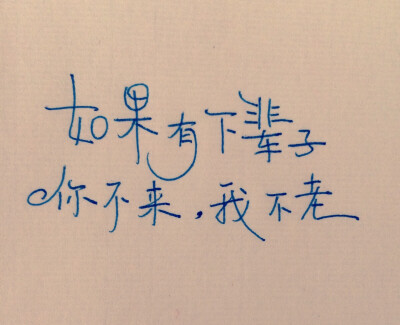 如果有下辈子
你不来，我不老